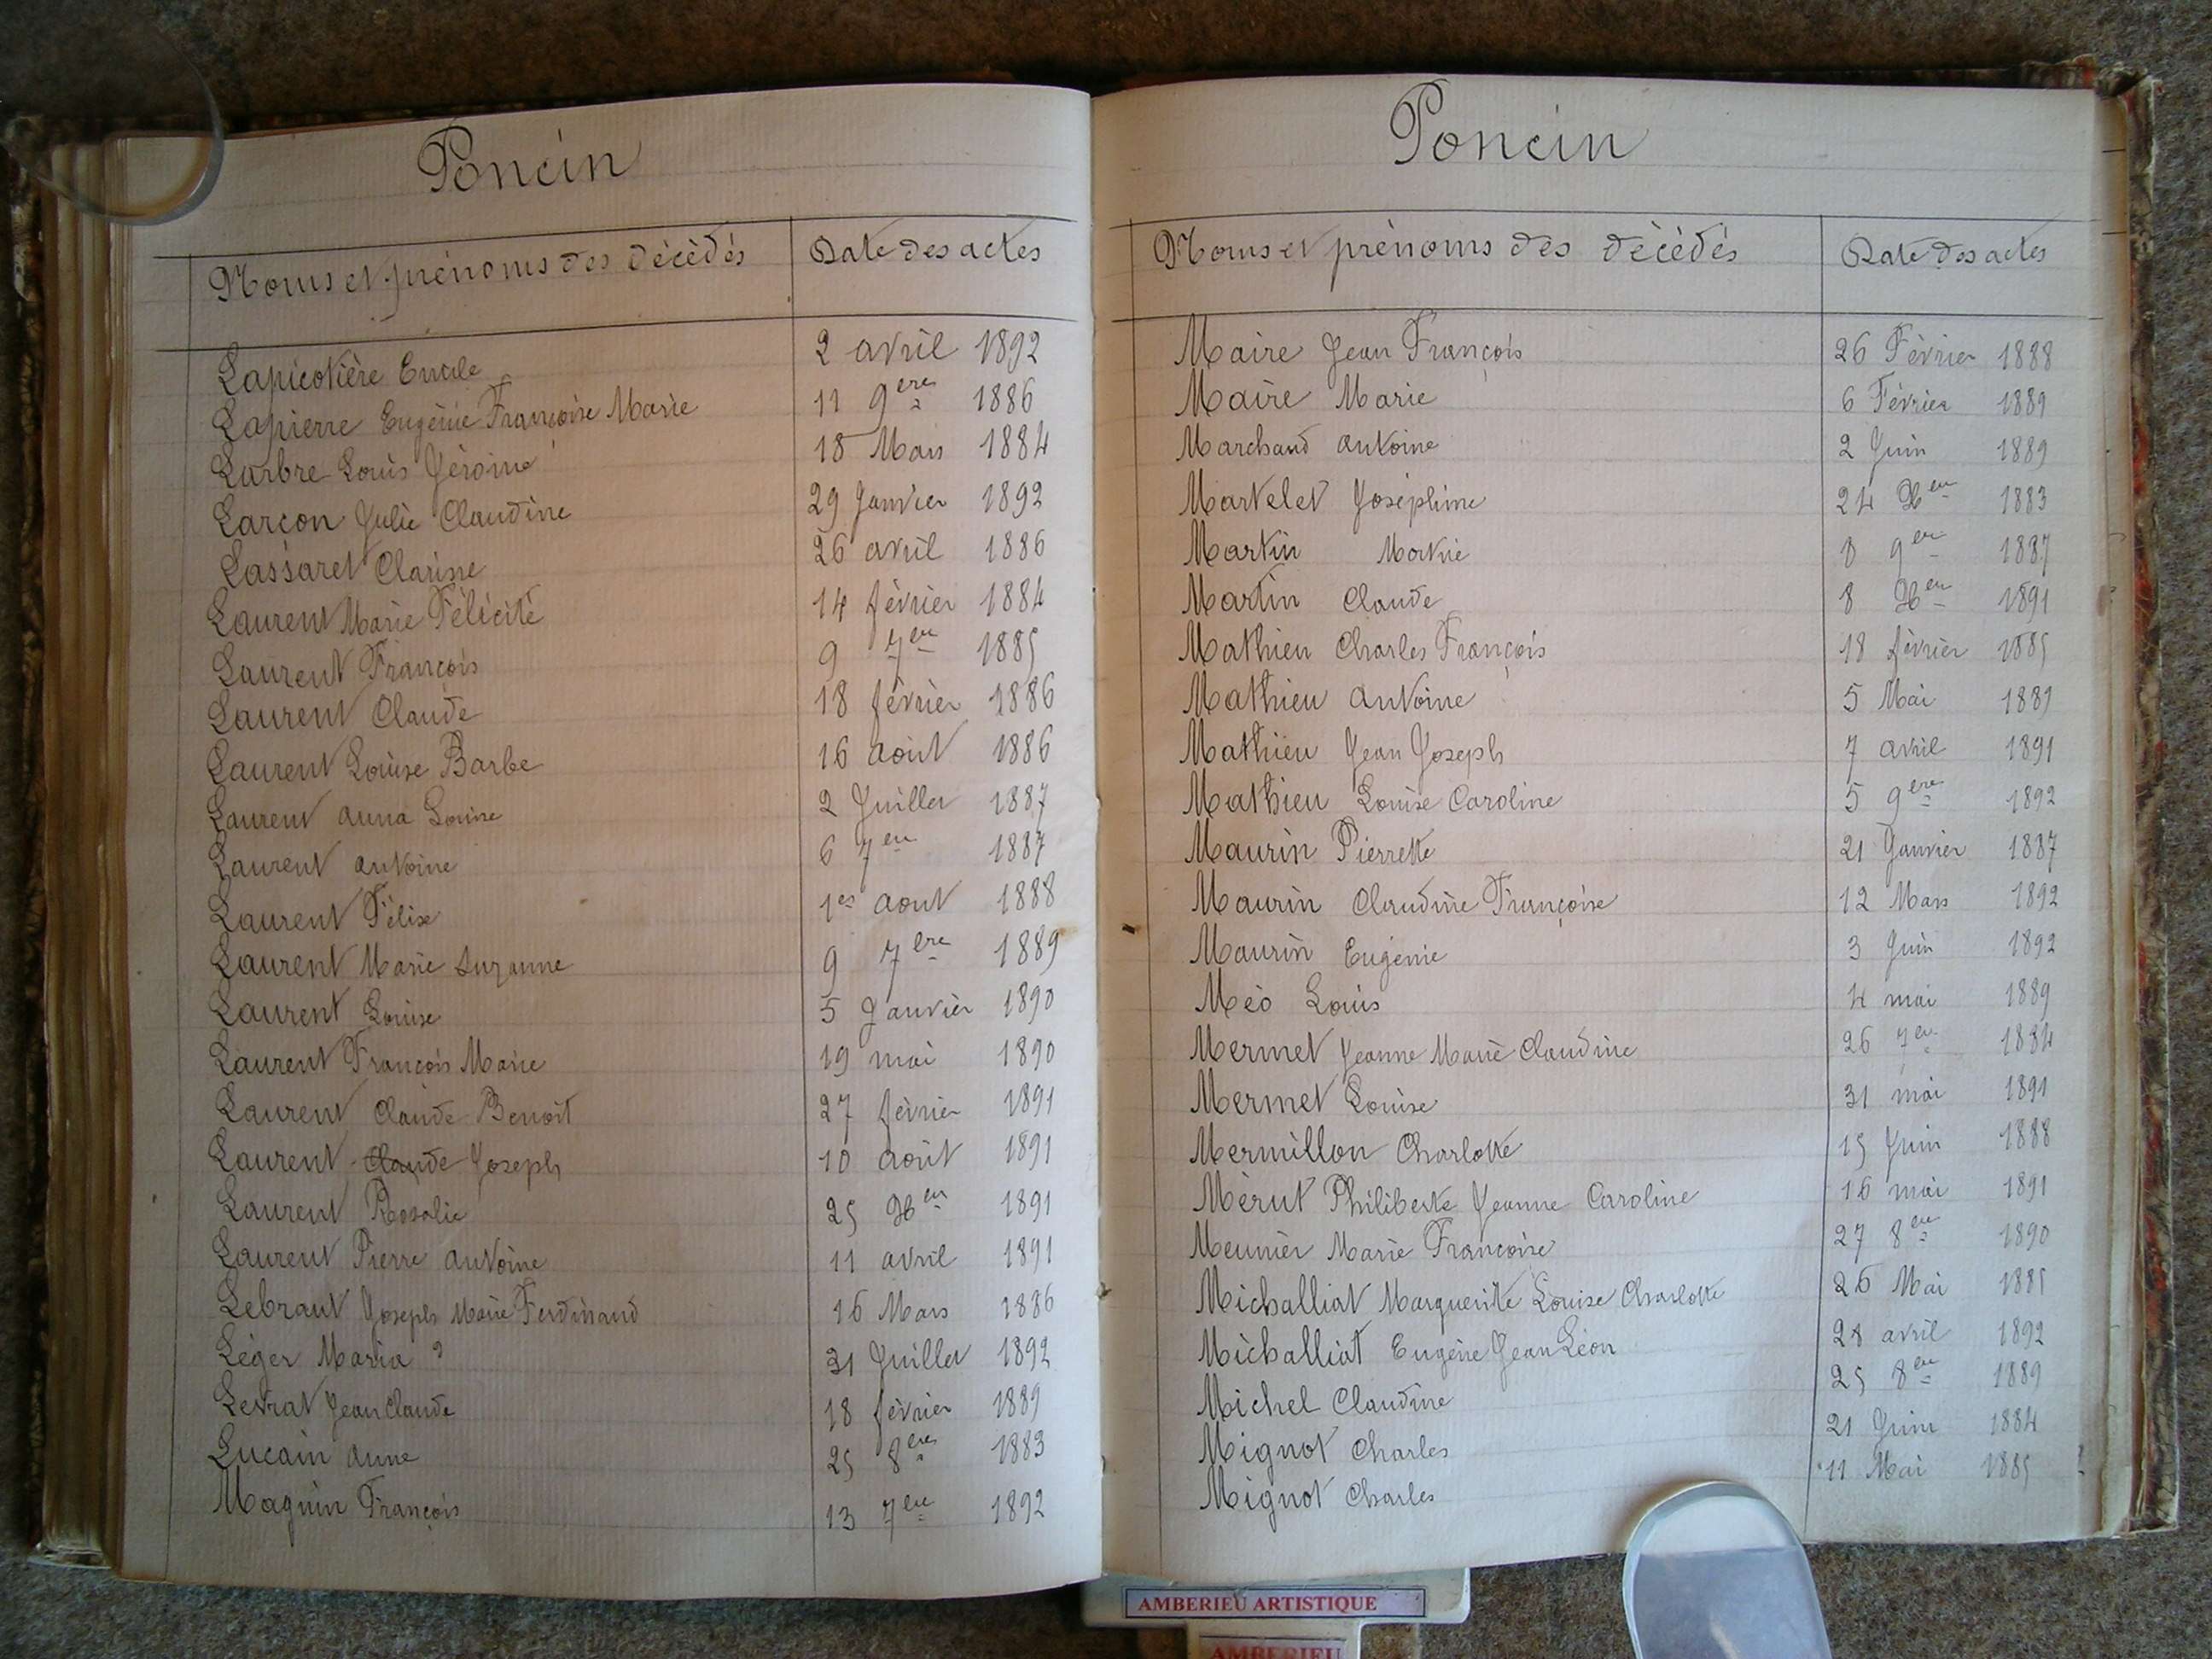 Poncin
Noms et prénoms des décédés Date des actes
Lapicotière Emile 2 avril 1892
Lapierre Eugénie Françoise Marie 11 9ere 1886
Larbre Louis Jérôme 18 Mars 1884
Larçon Julie Claudine 29 Janvier 1892
Lassaret Clarisse 26 avril 1886
Laurent Marie Félicité 14 février 1884
Laurent François 9 7ere 1885
Laurent Claude 18 février 1886
Laurent Louise Barbe 16 août 1886
Laurent Anna Louise 2 Juillet 1887
Laurent Antoine 6 7ere 1887
Laurent Félix 1er aout 1888
Laurent Marie Suzanne 9 7ere 1889
Laurent Louise 5 Janvier 1890
Laurent François Marie 19 mai 1890
Laurent Claude Benoît 27 février 1891
Laurent Claude Joseph 10 août 1891
Laurent Rosalie 25 Xbere 1891
Laurent Pierre Antoine 11 avril 1891
Lebraut Joseph Marie Ferdinand 16 Mars 1886
Léger Maria 31 Juillet 1892
Levrat Jean Claude 18 février 1889
Lucain Anne 25 8ere 1883
Magnin François 13 7ere 1892
Poncin
Noms et prénoms des décédés Date des actes
Maire Jean François 26 Février 1888
Maire Marie 6 Février 1889
Marchand Antoine 2 Juin 1889
Martelet Joséphine 24 Xbere 1883
Martin 8 9ere 1887
Martin Claude 8 Xbere 1891
Mathieu Charles François 18 février 1885
Mathieu Antoine 5 Mai
Mathieu Jean Joseph 7 avril 1891
Mathieu Louise Caroline 5 9ere 1892
Maurin Pierrette 21 Janvier 1887
Maurin Claudine Françoise 12 Mars 1892
Maurin Eugénie 3 Juin 1892
Méo Louis 4 mai 1889
Mermet Jeanne Marie Claudine 26 7ere 1884
Mermet Louise 31 mai 1891
Mermillon Charlotte 15 Juin 1888
Mérut Philiberte Jeanne Caroline 16 mai 1891
Meunier Marie Françoise 27 8ere 1890
Michalliat Marguerite Louise Charlotte 26 Mai 1885
Michalliat Eugène Jean Léon 28 avril 1892
Michel Claudine 25 8ere 1889
Mignot Charles 21 Juin 1884
Mignot Charles 11 Mai 1885
AMBERIEU ARTISTIQUE
AMBERIEU